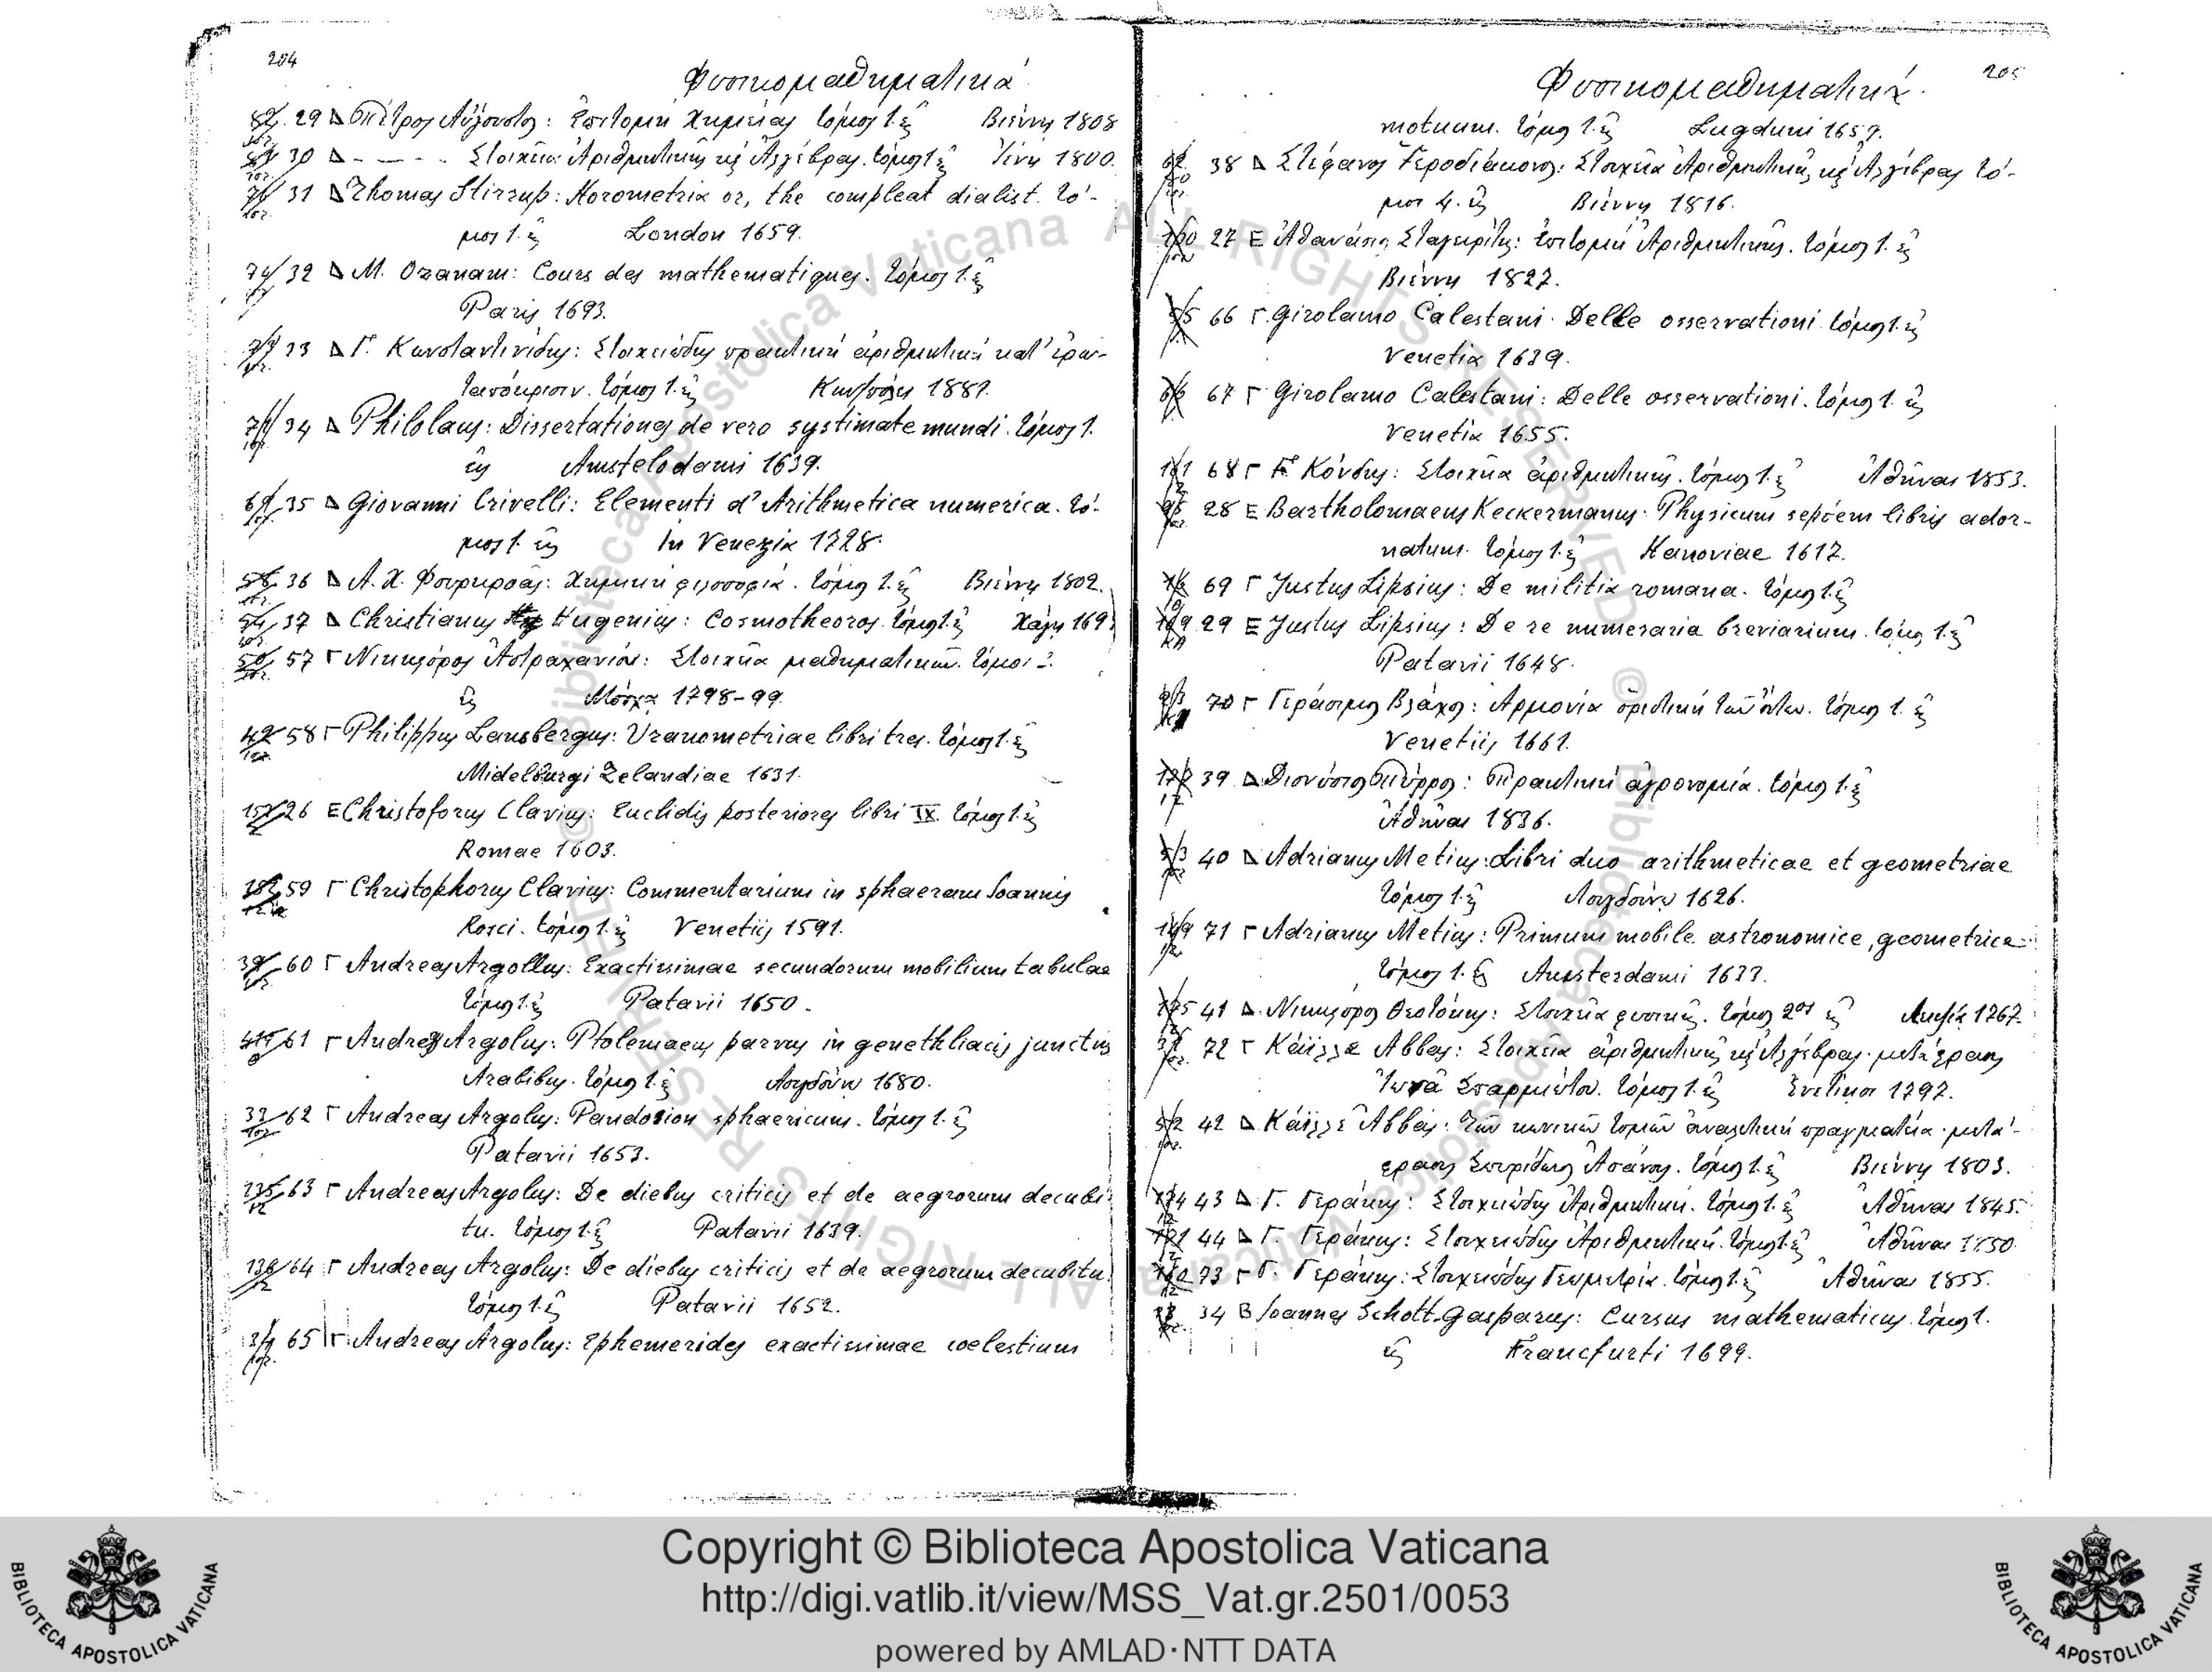 204
Φυσικομαθηματικά
29 Δ Πέτρος Αὔγουστος: Ἐπιτομὴ Χημείας τόμος 1. ἐν Βιέννῃ 1808
30 Δ - — - - Στοιχεῖα Ἀριθμητικῆς κὶ Ἀλγέβρας. τόμος 1 ἐν 1800.
31 Δ Thomas Stirrup: Horometria or, the compleat dialist. τό-
μος 1. ἐν London 1659.
74 32 Δ M. Ozanam: Cours des mathematiques. τόμος 1. ἐν
Paris 1693.
33 Δ Γ. Κωνσταντινίδης: Στοιχειώδης πρακτικὴ ἀριθμητικὴ κατ' ἐρω-
ταπόκρισιν. τόμος 1. ἐν Κων/πόλει 1881.
34 Δ Philolaus: Dissertationes de vero systimate mundi. τόμος 1.
ἐν Amstelodami 1639.
35 Δ Giovanni Crivelli: Elementi d'Arithmetica numerica. τό-
μος 1. ἐν In Venezia 1728.
36 Δ Α. Χ. Φουρκροᾶς: Χημικὴ φιλοσοφία. τόμος 1. ἐν Βιέννῃ 1802.
37 Δ Christianus Hugenius: Cosmotheoros. τόμος 1. ἐν Χάγῃ 169
57 Γ Νικηφόρος Ἀστραχανίου: Στοιχεῖα μαθηματικῶν. τόμοι
ἐν Μόσχᾳ 1798-99.
49 58 Γ Philippus Lansbergus: Uranometriae libri tres. τόμος 1. ἐν
Midelburgi Zelandiae 1631.
26 Ε Christoforus Clavius: Euclidis posteriores libri IX. τόμος 1. ἐν
Romae 1603.
59 Γ Christophorus Clavius: Commentarium in sphaeram Ioannis
Rosci. τόμος 1. ἐν Venetiis 1591.
39 60 Γ Andreas Argollus: Exactissimae secundorum mobilium tabulae
τόμος 1. ἐν Patavii 1650.
61 Γ Andreas Argolus: Ptolemaeus parvus in genethliacis junctus
Arabibus. τόμος 1. ἐν Λουγδούνῳ 1680.
33 62 Γ Andreas Argolus: Pandosion sphaericum. τόμος 1. ἐν
Patavii 1653.
135 63 Γ Andreas Argolus: De diebus criticis et de aegrorum decubi
tu. τόμος 1. ἐν Patavii 1639.
136 64 Γ Andreas Argolus: De diebus criticis et de aegrorum decubitu.
τόμος 1. ἐν Patavii 1652.
34 65 Γ Andreas Argolus: Ephemerides exactissimae coelestium
205
Φυσικομαθηματικά.
motuum. τόμος 1. ἐν Lugduni 1657.
38 Δ Στέφανος Ἱεροδιάκονος: Στοιχεῖα Ἀριθμητικῆς κὶ Ἀλγέβρας τό-
μοι 4. ἐν Βιέννῃ 1816.
27 Ε Ἀθανάσιος Σταγειρίτης: Ἐπιτομὴ Ἀριθμητικῆς. τόμος 1. ἐν
Βιέννῃ 1827.
66 Γ. Girolamo Calestani. Delle osservationi τόμος 1. ἐν
Venetia 1639.
67 Γ Girolamo Calestani: Delle osservationi. τόμος 1. ἐν
Venetia 1655.
68 Γ Κόνδης: Στοιχεῖα ἀριθμητικῆς. τόμος 1. ἐν Ἀθῆναι 1853.
28 Ε Bartholomaeus Keckermanus. Physicum septem libris ador-
natum. τόμος 1. ἐν Hanoviae 1617.
69 Γ Justus Lipsius: De militia romana. τόμος 1. ἐν
29 Ε Justus Lipsius: De re numeraria breviarium. τόμος 1. ἐν
Patavii 1648.
70 Γ Γεράσιμος Βλάχος: Ἁρμονία ὁριστικὴ τῶν ὄντων. τόμος 1. ἐν
Venetiis 1661.
39 Δ Διονύσιος Πύρρος: Πρακτικὴ ἀγρονομία. τόμος 1. ἐν
Ἀθῆναι 1836.
40 Δ Adrianus Metius: Libri duo arithmeticae et geometriae
τόμος 1. ἐν Λουγδούνῳ 1626.
149 71 Γ Adrianus Metius: Primum mobile astronomice, geometrice
τόμος 1. ἐν Amsterdami 1633.
41 Δ. Νικηφόρος Θεοτόκης: Στοιχεῖα φυσικῆς. τόμος 2ος ἐν Λειψίᾳ 1767.
72 Γ Κάϊλλε Αββας: Στοιχεῖα ἀριθμητικῆς κὶ Ἀλγέβρας. μετάφρασις
Ἰωνᾶ Σπαρμιώτου. τόμος 1. ἐν Ἐνετίῃσι 1797.
42 Δ Κάϊλλὲ Ἀββᾶς: Τῶν κωνικῶν τομῶν ἀναλυτικὴ πραγματεία. μετά-
φρασις Σπυρίδωνος Ἀσάνους. τόμος 1. ἐν Βιέννῃ 1803.
174 43 Δ Γ. Γεράκης: Στοιχειώδης Ἀριθμητική. τόμος 1. ἐν Ἀθῆναι 1845.
44 Δ Γ. Γεράκης: Στοιχειώδης Ἀριθμητική. τόμος 1. ἐν Ἀθῆναι 1850
73 Γ Γ. Γεράκης: Στοιχειώδης Γεωμετρία. τόμος 1. ἐν Ἀθῆναι 1855.
34 Β Joannes Schott Gasparus: Cursus mathematicus. τόμος 1.
ἐν Francfurti 1699.
© Biblioteca Apostolica Vaticana ALL RIGHTS RESERVED
BIBLIOTECA APOSTOLICA VATICANA
Copyright © Biblioteca Apostolica Vaticana
http://digi.vatlib.it/view/MSS_Vat.gr.2501/0053
powered by AMLAD·NTT DATA
BIBLIOTECA APOSTOLICA VATICANA